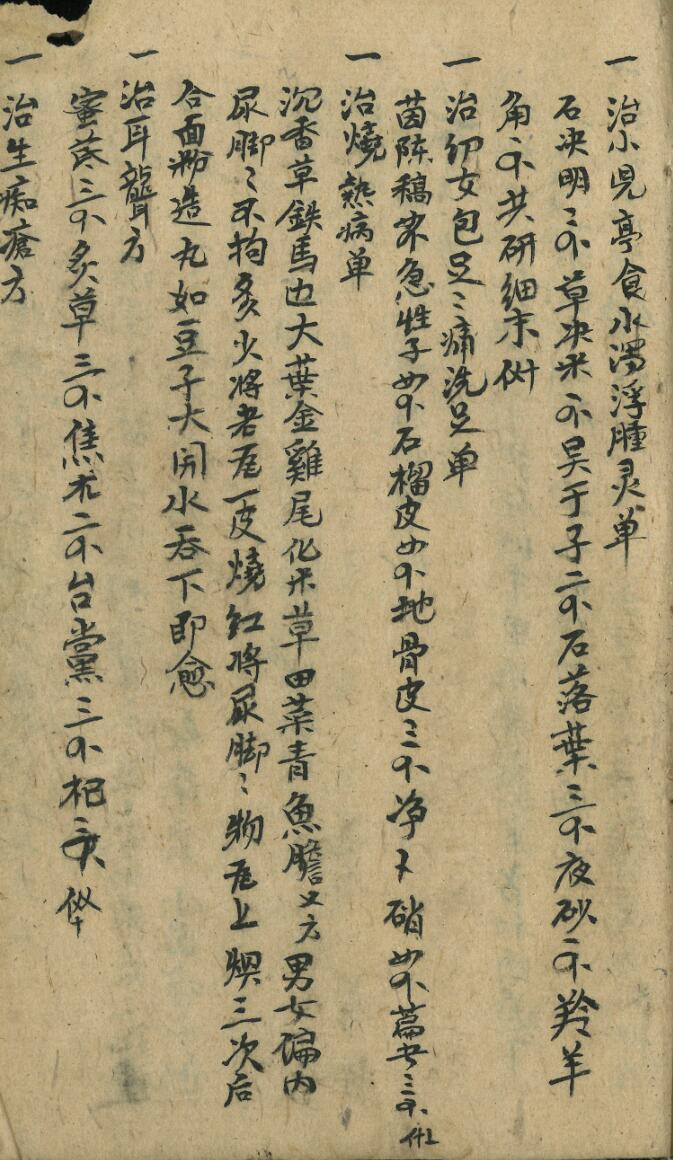 一 治小児亭食水濁浮腫灵单
石决明三个草决米个吴于子二个石落葉三个夜砂个羚羊
角个共研細末
一 治幼女包足〻痛洗足单
茵陈稿本急性子四个石榴皮四个地骨皮三个净卜硝四个
一 治燒熱病单
沉香草鉄馬也大葉金雞尾化米草田菜青魚膽又方男女偏内
尿脚〻不拘多少将老瓦一皮燒红将尿脚〻物瓦上煅三次后
合面粉造丸如豆子大用水吞下即愈
一 治耳聾方
蜜芪三个炙草三个焦术二个台黨三个杞
一 治生痴瘡方